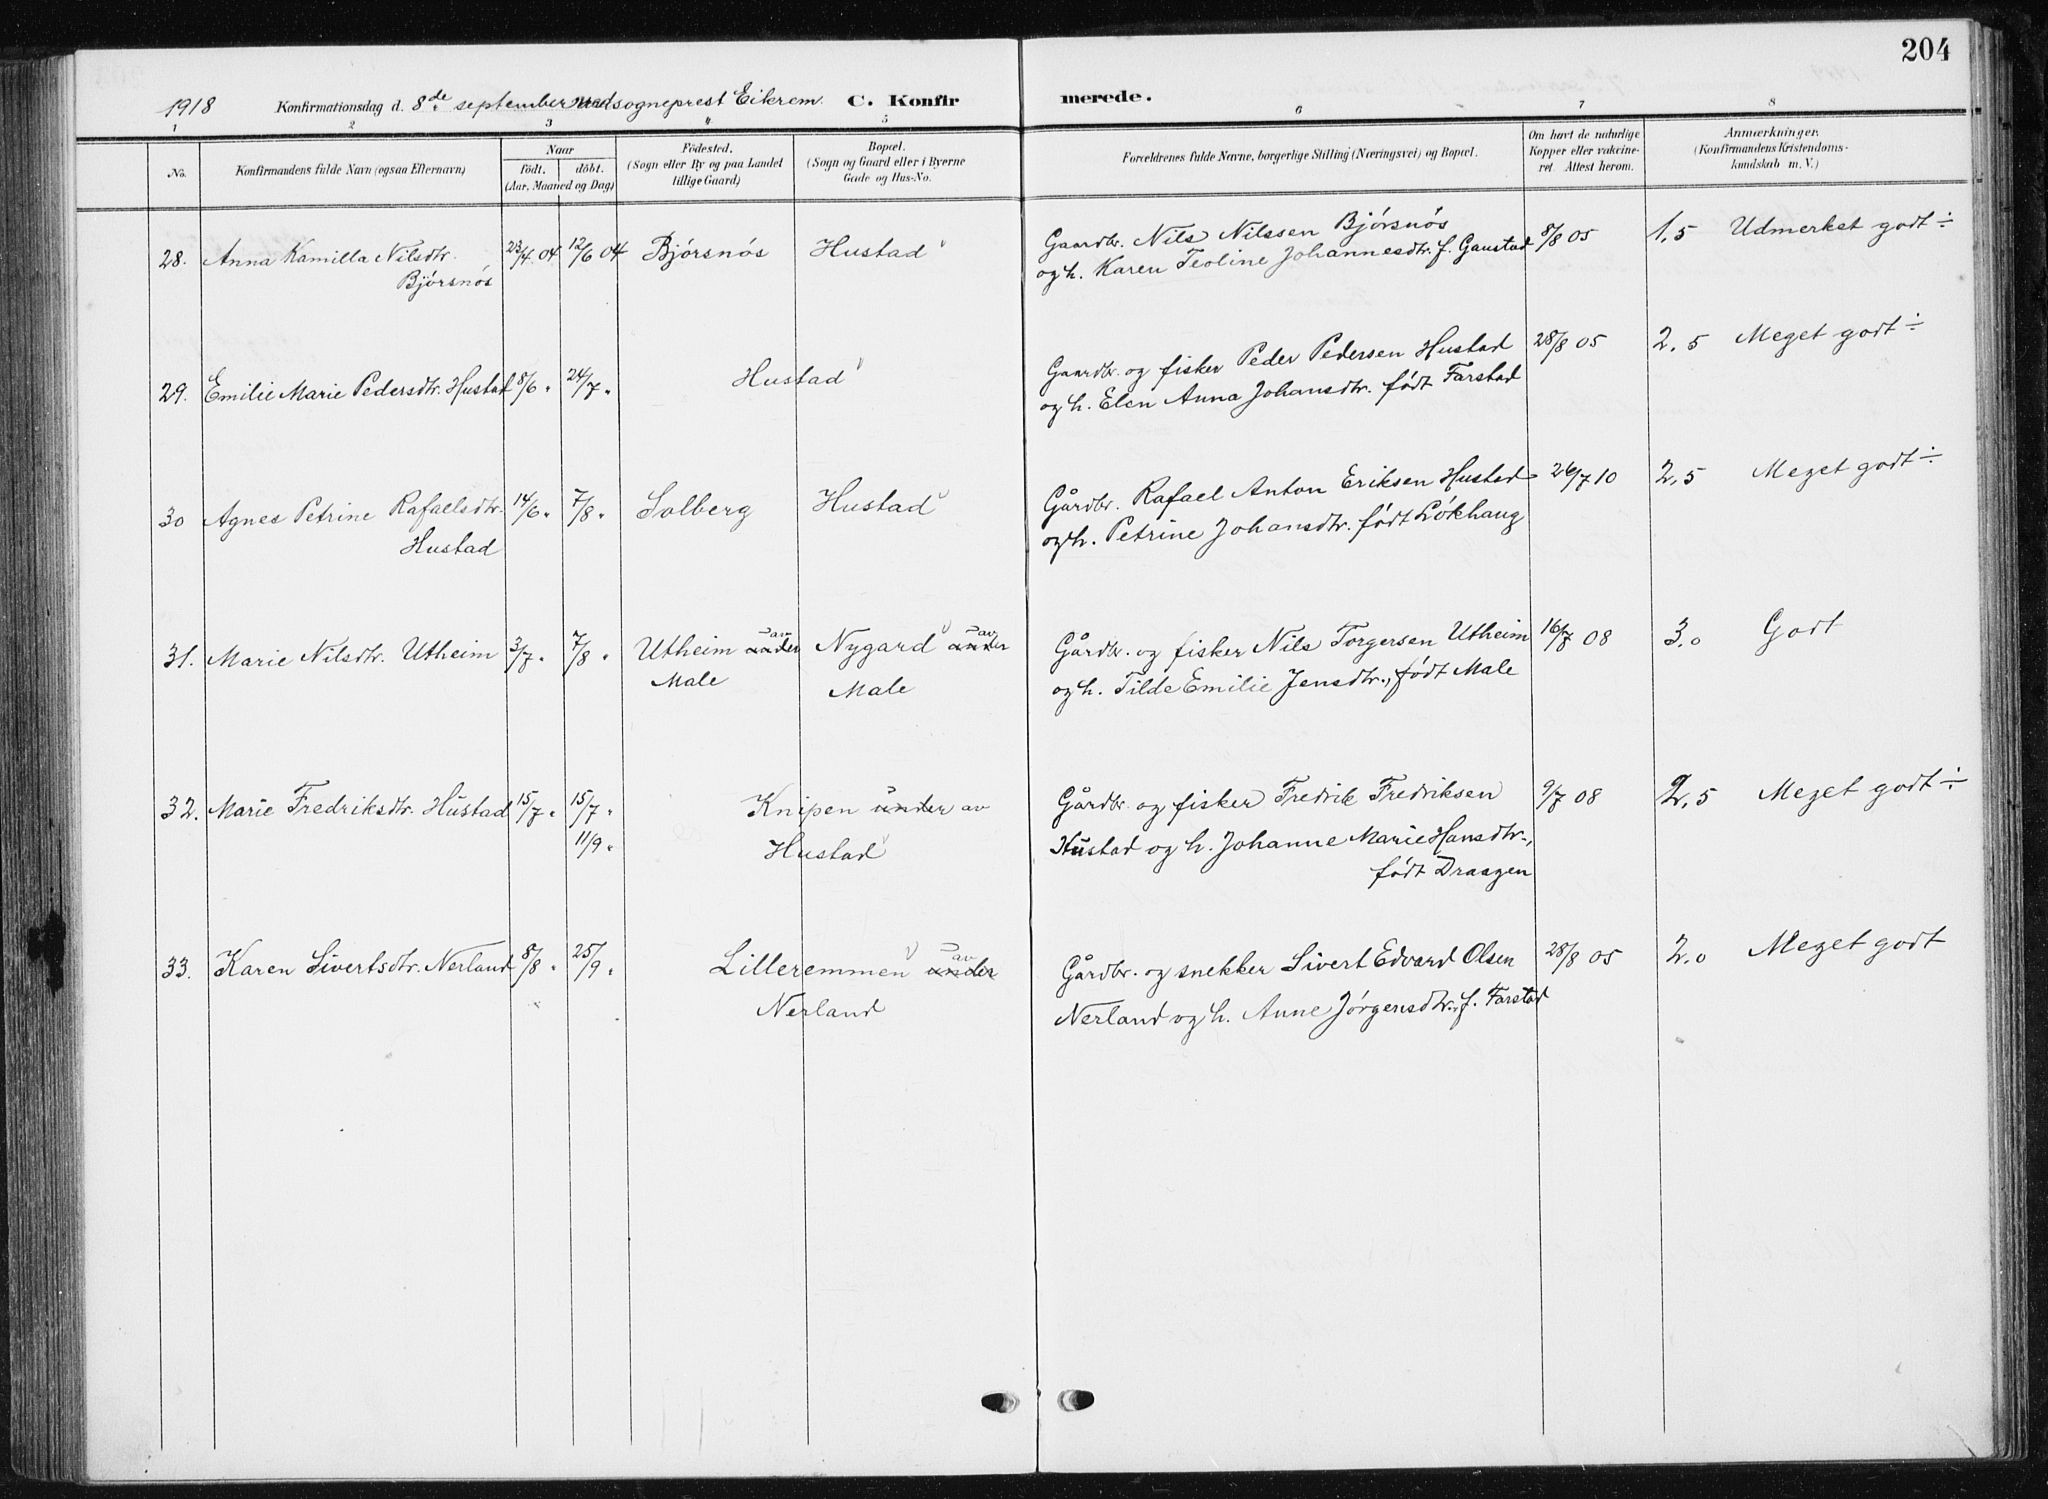 204
1918 Konfirmationsdag d. 8de september ved sogneprest Eikrem. C. Konfirmerede.
1 2 3 4 5 6 7 8
No.
Konfirmandens fulde Navn (ogsaa Efternavn)
Naar
födt. döbt.
(Aar, Maaned og Dag)
Födested.
(Sogn eller By og paa Landet
tillige Gaard)
Bopæl.
(Sogn og Gaard eller i Byerne
Gade og Hus-No.
Forældrenes fulde Navne, borgerlige Stilling (Næringsvei) og Bopæl.
Om havt de naturlige
Kopper eller vakcine-
ret. Attest herom.
Anmærkninger.
(Konfirmandens Kristendoms-
kundskab m. V.)
28. Anna Kamilla Nilsdtr. 23/4 04 12/6 04 Bjørsnös Hustad Gaardbr. Nils Nilssen Bjørsnös 8/8 05 1,5 Udmerket godt ÷
Bjørsnös og h. Karen Teoline Johannesdtr. f. Gaustad
29. Emilie Marie Pedersdtr. Hustad 8/6 " 24/7 " Hustad Gaardbr. og fisker Peder Pedersen Hustad 28/8 05 2,5 Meget godt ÷
og h. Elen Anna Johansdtr. født Farstad
30 Agnes Petrine Rafaelsdtr. 14/6 " 7/8 " Solberg Hustad Gårdbr. Rafael Anton Eriksen Hustad 26/7 10 2,5 Meget godt ÷
Hustad og h. Petrine Johansdtr. født Løkhaug
31. Marie Nilsdtr. Utheim 3/7 " 7/8 " Utheim under av Nygard under av Gårdbr. og fisker Nils Torgersen Utheim 16/7 08 3.0 Godt
Male Male og h. Tilde Emilie Jensdtr., født Male
32. Marie Fredriksdtr. Hustad 15/7 " 15/7 " Knipen under av Gårdbr. og fisker Fredrik Fredriksen 9/7 08 2,5 Meget godt ÷
11/9 " Hustad Hustad og h. Johanne Marie Hansdtr.,
født Draagen
33. Karen Sivertsdtr. Nerland 8/8 " 25/9 " Lilleremmen under av Gårdbr. og snekker Sivert Edvard Olsen 28/8 05 2.0 Meget godt
Nerland Nerland og h. Anne Jørgensdtr., f. Farstad